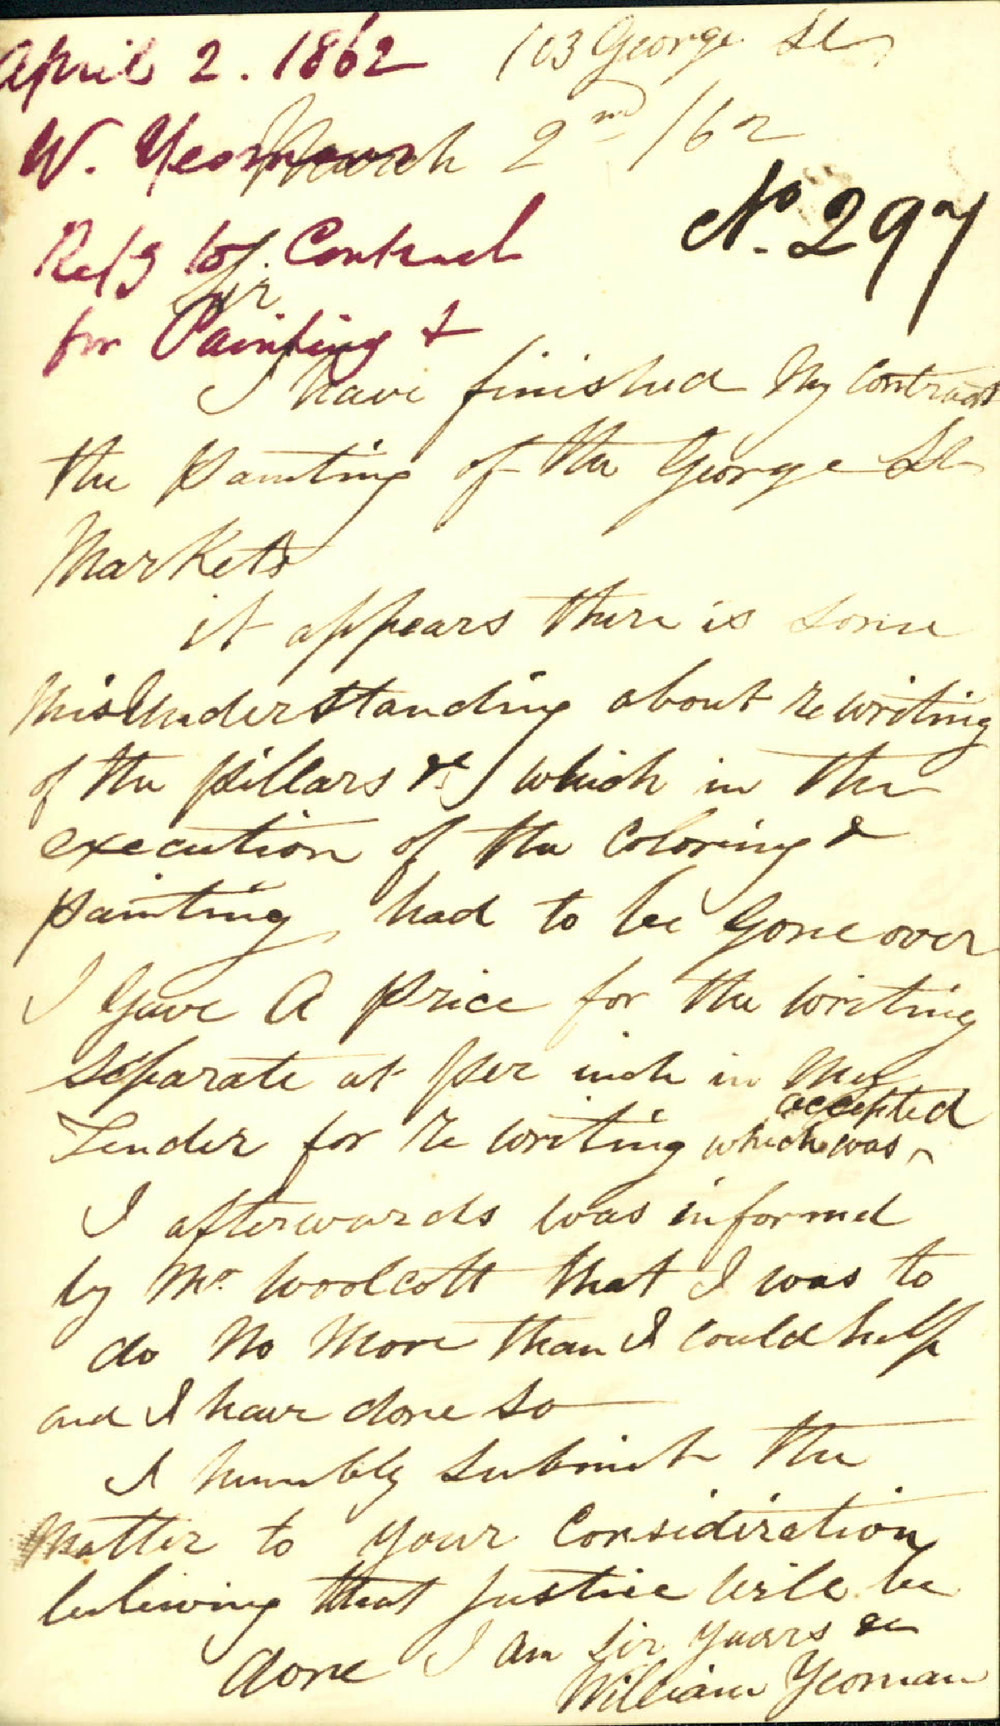 April 2. 1862
W. Yeoman
Resg to Contract
for Painting &
103 George St
March 2nd /62
No. 297
Sir
I have finished My Contract
the painting of the George St
Markets
it appears there is some
MisUnderstanding about re writing
of the pillars &c which in the
execution of the Coloring &
painting had to be Gone over
I Gave A price for the writing
separate at per inch in My
Tender for re writing which was accepted
I afterwards was informed
by Mr. Woolcott that I was to
do No More than I could help
and I have done so
I humbly submit the
Matter to your Consideration
beleiving that Justice will be
done I am Sir yours &c
William Yeoman